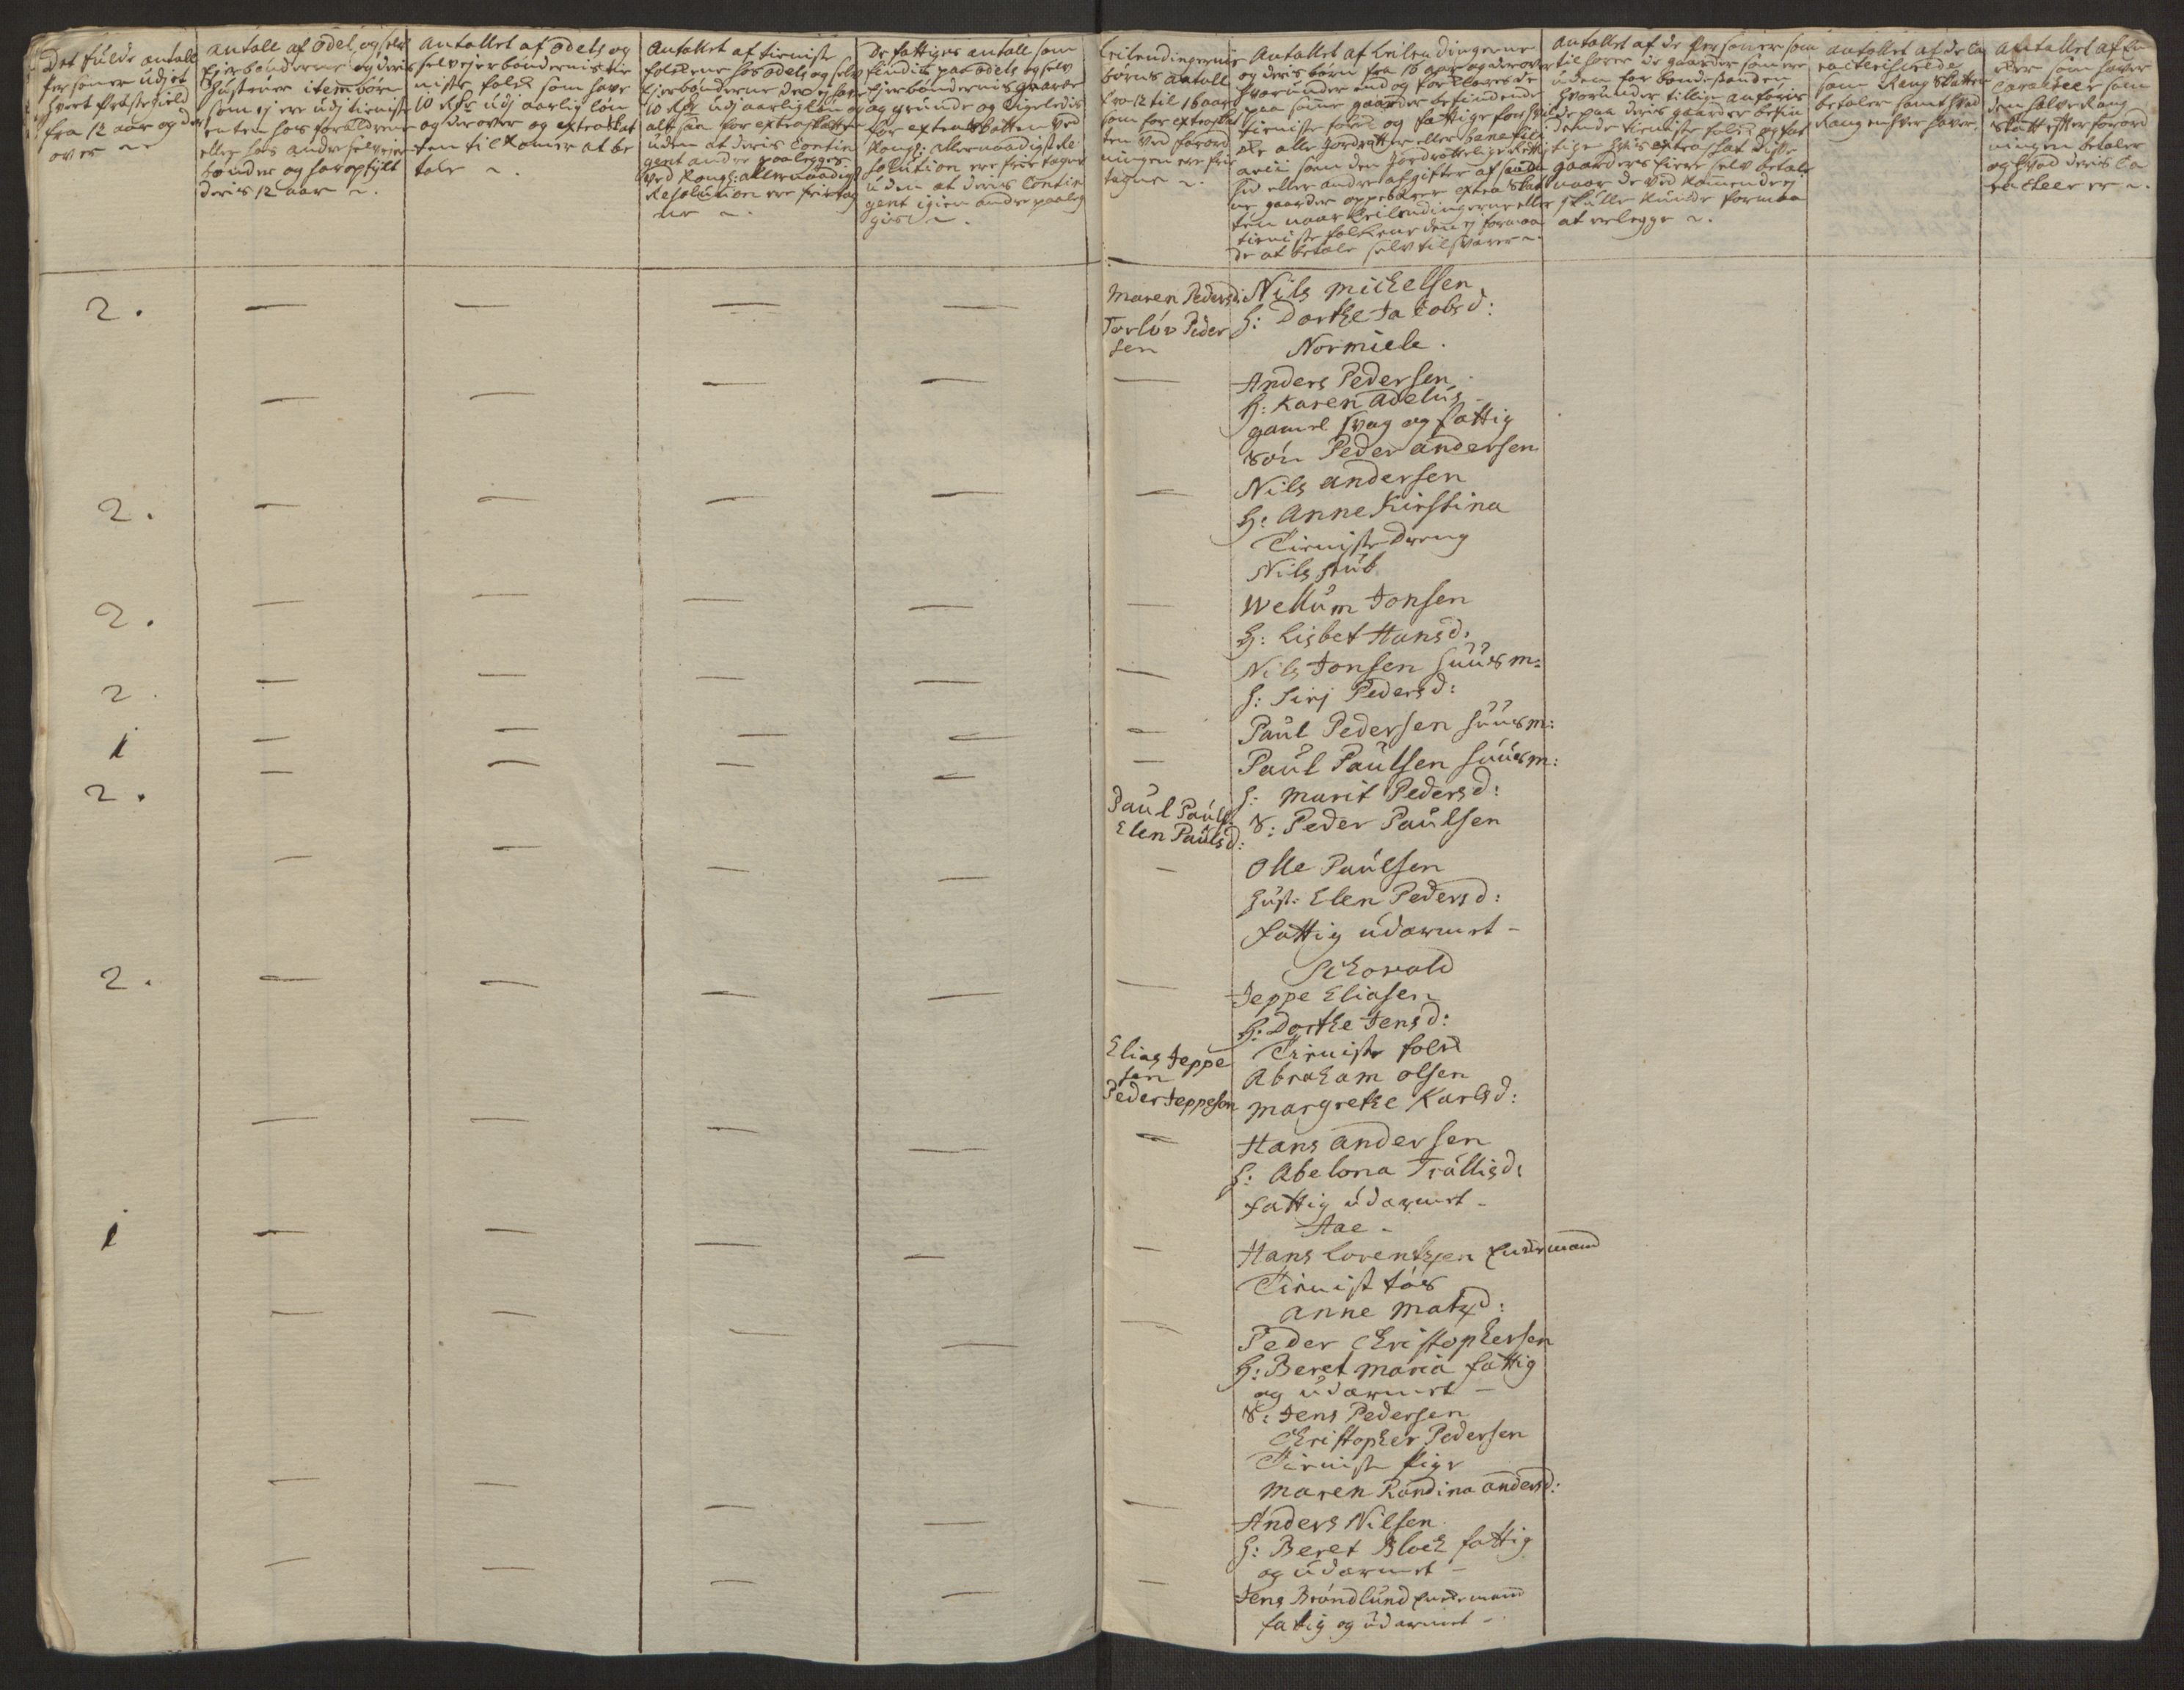 Det fulde antall
personer udj et
hvert Præstegield
fra 12 aar og der
over
antall af odel og selv
Ejerbønderne og deris
Hustruer item børn
som ej ere udj tieniste
enten hos forældrene
eller hos andre selvejer
bønder og har opfylt
deris 12 aar
Antallet af odels og
selvejerbøndernis tie
niste folk som have
10 Rdr udj aarlig løn
og derover og extraskat
ten tilkomer at be
tale
Antallet af tieniste
folkene hos odels og selv
Ejerbønderne der ej have
10 Rdr udj aarlig løn og
altsaa for extraskatten
uden at deris Contin
gent andre paalegges
ved Kongl: allernaadigst
Resolution ere fritag
ne
De fattiges antall som
findis paa odels og selv
Ejerbøndernis gaarde
og grunde og ligeledis
for extraskatten ved
Kongl: allernaadigste Re
solution ere fritagne
uden at deris Contin
gent igien andre paaleg
gis
Leilendingernis
børns antall
fra 12 til 16 aar
som for extraskat
ten ved forord
ningen ere frie
tagne
Antallet af Leilendingerne
og deris børn fra 16 aar og derover
hvorunder end og forklares de
paa samme gaarder befindende
tieniste folk og fattige for hvil
ke alle Jorddrotter eller Benefici
arii som den Jorddrottelige Rettig
hed eller andre afgifter af samme
gaarder oppebærer extraskat
ten naar Leilendingerne eller
tieniste folkene den ej formaa
de at betale selv tilsvarer
Antallet af de personer som
tilhører de gaarder som ere
uden for bondestanden
hvorunder tillige anføris
de paa deris gaarder befin
dende tieniste folk og fat
tige hvis extraskat disse
gaarders Eiere selv betale
naar de vedkomende ej
skulle kunde formaa
at erlegge
antallet af de Ca
racteriserede
som Rang skatten
betaler samt hvad
Rang enhver haver
Antallet af En
der som haver
Caracteer som
den halve Rang
skatt efter forord
ningen betaler
og hvad deris Ca
racteer er
2.
Maren Pedersd:
Torlóv Peder
sen
Nils Michelsen
H: Dorthe Jacobsd:
Normiele.
Anders Pedersen
H: Karen Adelús
gamel svag og fattig
Søn Peder Andersen
2.
Nils Andersen
H: Anne Kirstina
Tieniste dreng
Nils Stub
2.
Wellúm Jonsen
H: Lisbet Hansd:
2
Nils Jonsen húúsm:
H: Sirj Pedersd:
1
Paul Pedersen húúsm:
2.
Paúl Paúlsen húúsm:
H: Marit Pedersd:
Paul Paúls:
Elen Paúlsd:
S: Peder Paúlsen
Olle Paúlsen
Húst: Elen Pedersd:
fattig údarmet
Skovold
2.
Jeppe Eliasen
H: Dorthe Jensd:
Elias Jeppe
sen
Peder Jeppesen
Tieniste folk
Abraham Olsen
Margrethe Karlsd:
Hans Andersen
H: Abelona Trúllisd:
fattig údarmet
Aae
1
Hans Lorentzen Enkemand
Tienist tøs
Anne Matzd:
Peder Christophersen
H: Beret Maria fattig
og údarmet
S: Jens Pedersen
Christopher Pedersen
Tieniste pige
Maren Randina Andersd:
Anders Nilsen
H: Beret Block fattig
og údarmet
Jens Brøndlund Enkemand
fatig og údarmet